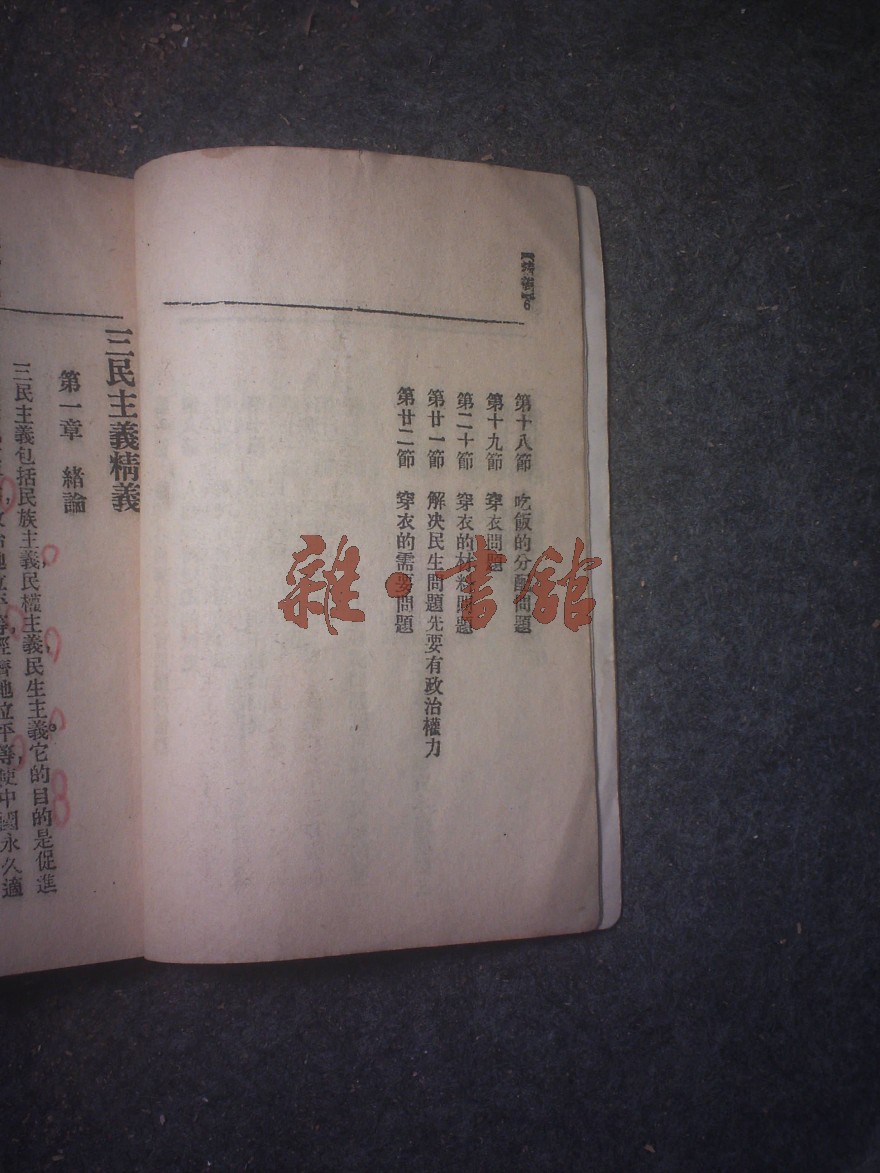 第十八節 吃飯的分配問題
第十九節 穿衣問題
第二十節 穿衣的材料問題
第廿一節 解决民生問題先要有政治權力
第廿二節 穿衣的需要問題
雜·書舘
三民主義精義
第一章 緒論
三民主義包括民族主義,民權主義,民生主義。它的目的是促進
政治地位平等,經濟地位平等,使中國永久適